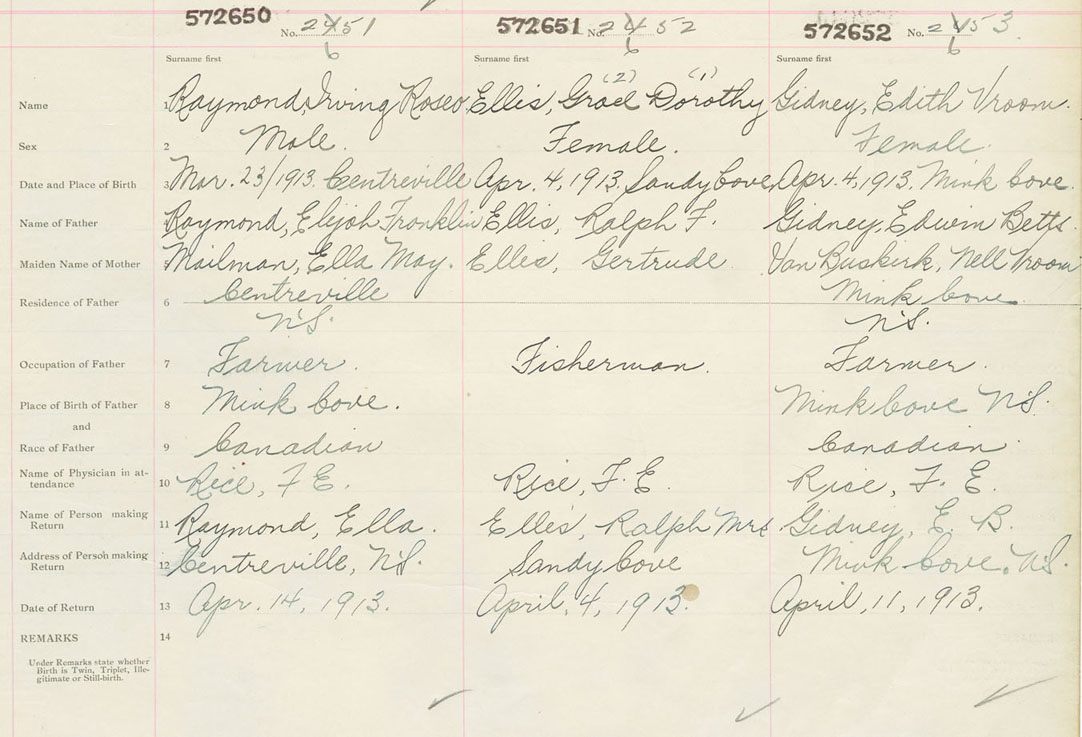 572650 No. 2451 6 572651 No. 24 52 6 572652 No. 2453. 6
Surname first Surname first Surname first
(2) (1)
Name 1 Raymond, Irving Roseo Ellis, Grace Dorothy Gidney, Edith Vroom.
Sex 2 Male. Female. Female.
Date and Place of Birth 3 Mar. 23/1913. Centreville Apr. 4, 1913. Sandy Cove, Apr. 4, 1913. Mink Cove.
Name of Father Raymond, Elijah Franklin Ellis, Ralph F. Gidney, Edwin Betts
Maiden Name of Mother Mailman, Ella May. Ellis, Gertrude Van Buskirk, Nell Vroom
Residence of Father 6 Centreville Mink Cove
N.S. N.S.
Occupation of Father 7 Farmer. Fisherman. Farmer.
Place of Birth of Father 8 Mink Cove. Mink Cove N.S.
and
Race of Father 9 Canadian Canadian
Name of Physician in at-
tendance 10 Rice, F E. Rice, F. E. Rice, F. E.
Name of Person making
Return 11 Raymond, Ella. Ellis, Ralph Mrs Gidney, E. B.
Address of Person making
Return 12 Centreville, N.S. Sandy Cove Mink Cove. N.S.
Date of Return 13 Apr. 14, 1913. April, 4, 1913. April, 11, 1913.
REMARKS 14
Under Remarks state whether
Birth is Twin, Triplet, Ille-
gitimate or Still-birth.